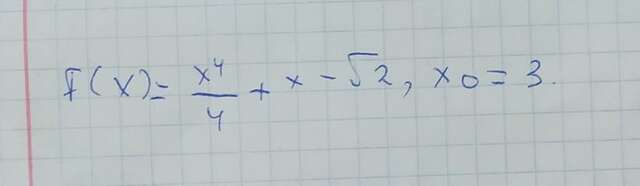 f(x) = x⁴/4 + x - √2, x₀ = 3.